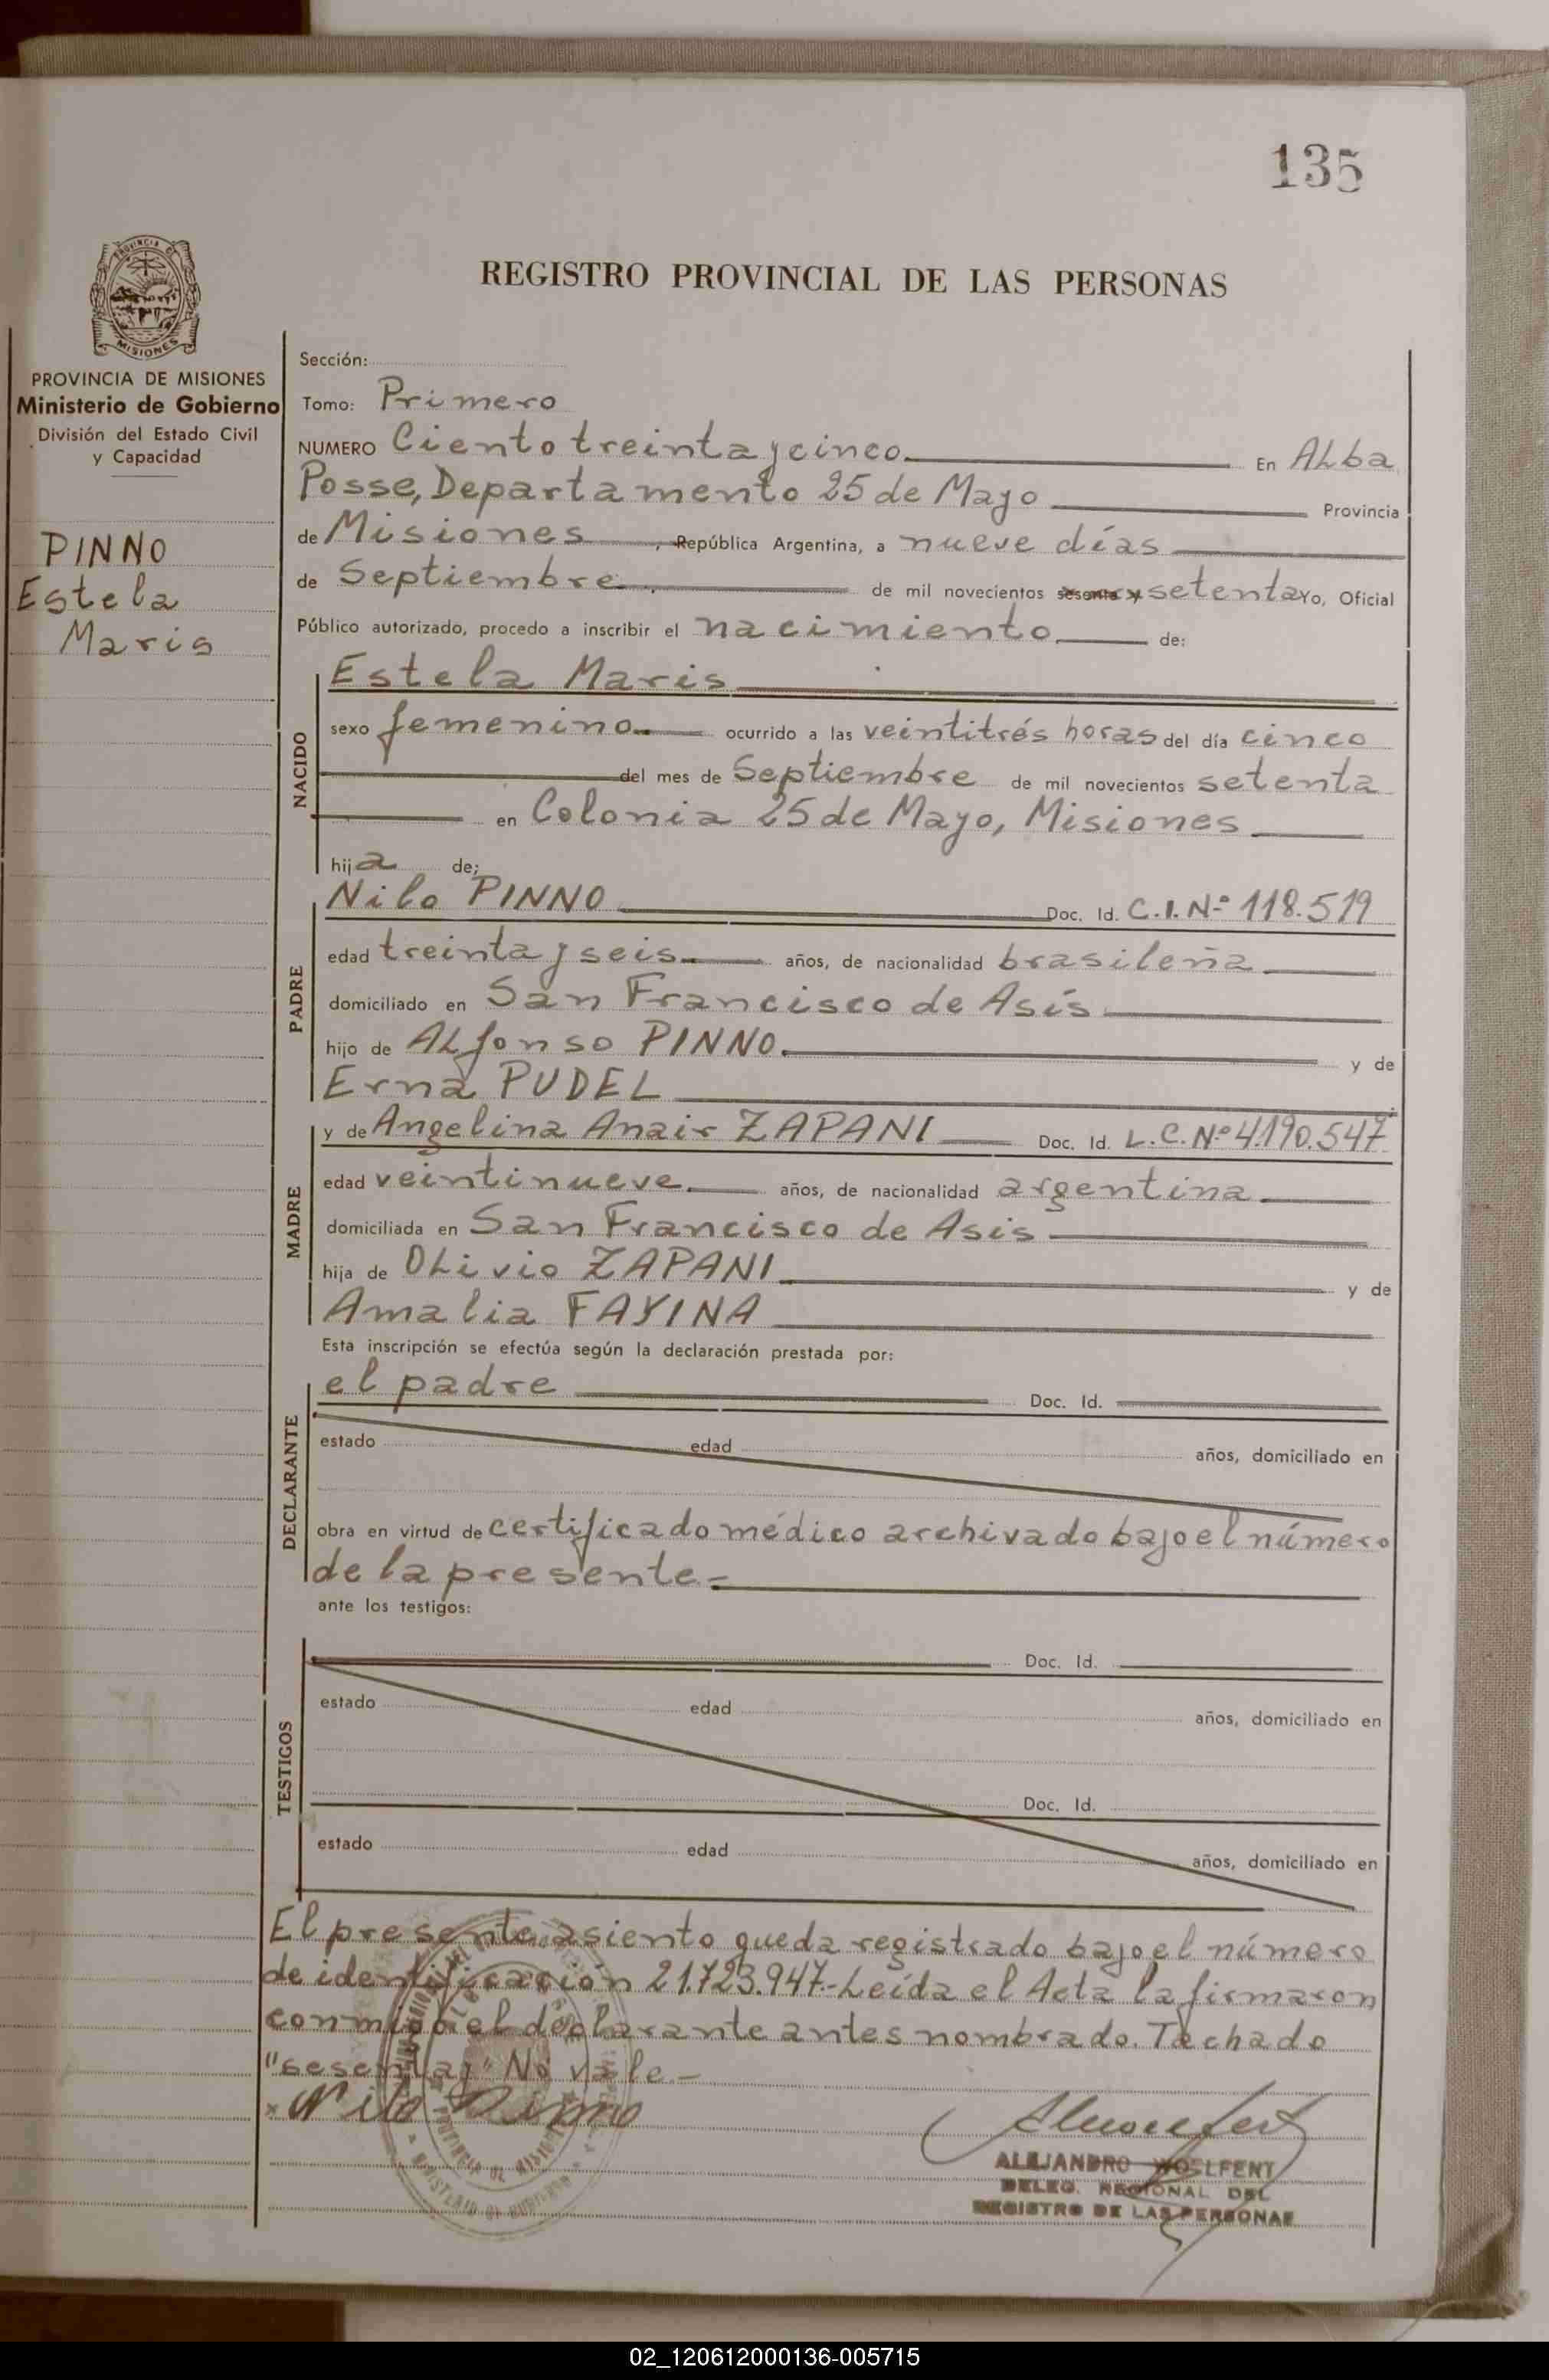 135
PROVINCIA DE
MISIONES
PROVINCIA DE MISIONES
Ministerio de Gobierno
División del Estado Civil
y Capacidad
PINNO
Estela
Maris
REGISTRO PROVINCIAL DE LAS PERSONAS
Sección:
Tomo: Primero
NUMERO Ciento treinta y cinco En Alba
Posse, Departamento 25 de Mayo Provincia
de Misiones, República Argentina, a nueve días
de Septiembre de mil novecientos sesenta y setenta Yo, Oficial
Público autorizado, procedo a inscribir el nacimiento de:
NACIDO
Estela Maris
sexo femenino ocurrido a las veintitrés horas del día cinco
del mes de Septiembre de mil novecientos setenta
en Colonia 25 de Mayo, Misiones
hija de:
PADRE
Nilo PINNO Doc. Id. C.I. Nº 118.519
edad treinta y seis años, de nacionalidad brasileña
domiciliado en San Francisco de Asís
hijo de Alfonso PINNO y de
Erna PUDEL
MADRE
y de Angelina Anair ZAPANI Doc. Id. L.C. Nº 4.190.547
edad veintinueve años, de nacionalidad argentina
domiciliada en San Francisco de Asis
hija de Olivio ZAPANI y de
Amalia FAYINA
Esta inscripción se efectúa según la declaración prestada por:
DECLARANTE
el padre Doc. Id.
estado edad años, domiciliado en
obra en virtud de certificado médico archivado bajo el número
de la presente.-
ante los testigos:
TESTIGOS
Doc. Id.
estado edad años, domiciliado en
Doc. Id.
estado edad años, domiciliado en
El presente asiento queda registrado bajo el número
de identificación 21.723.947.- Leída el Acta la firmaron
conmigo el declarante antes nombrado. Tachado
"sesenta y" No vale.-
x Nilo Pinno
ALEJANDRO WOSLFENT
DELEG. REGIONAL DEL
REGISTRO DE LAS PERSONAS
02_120612000136-005715